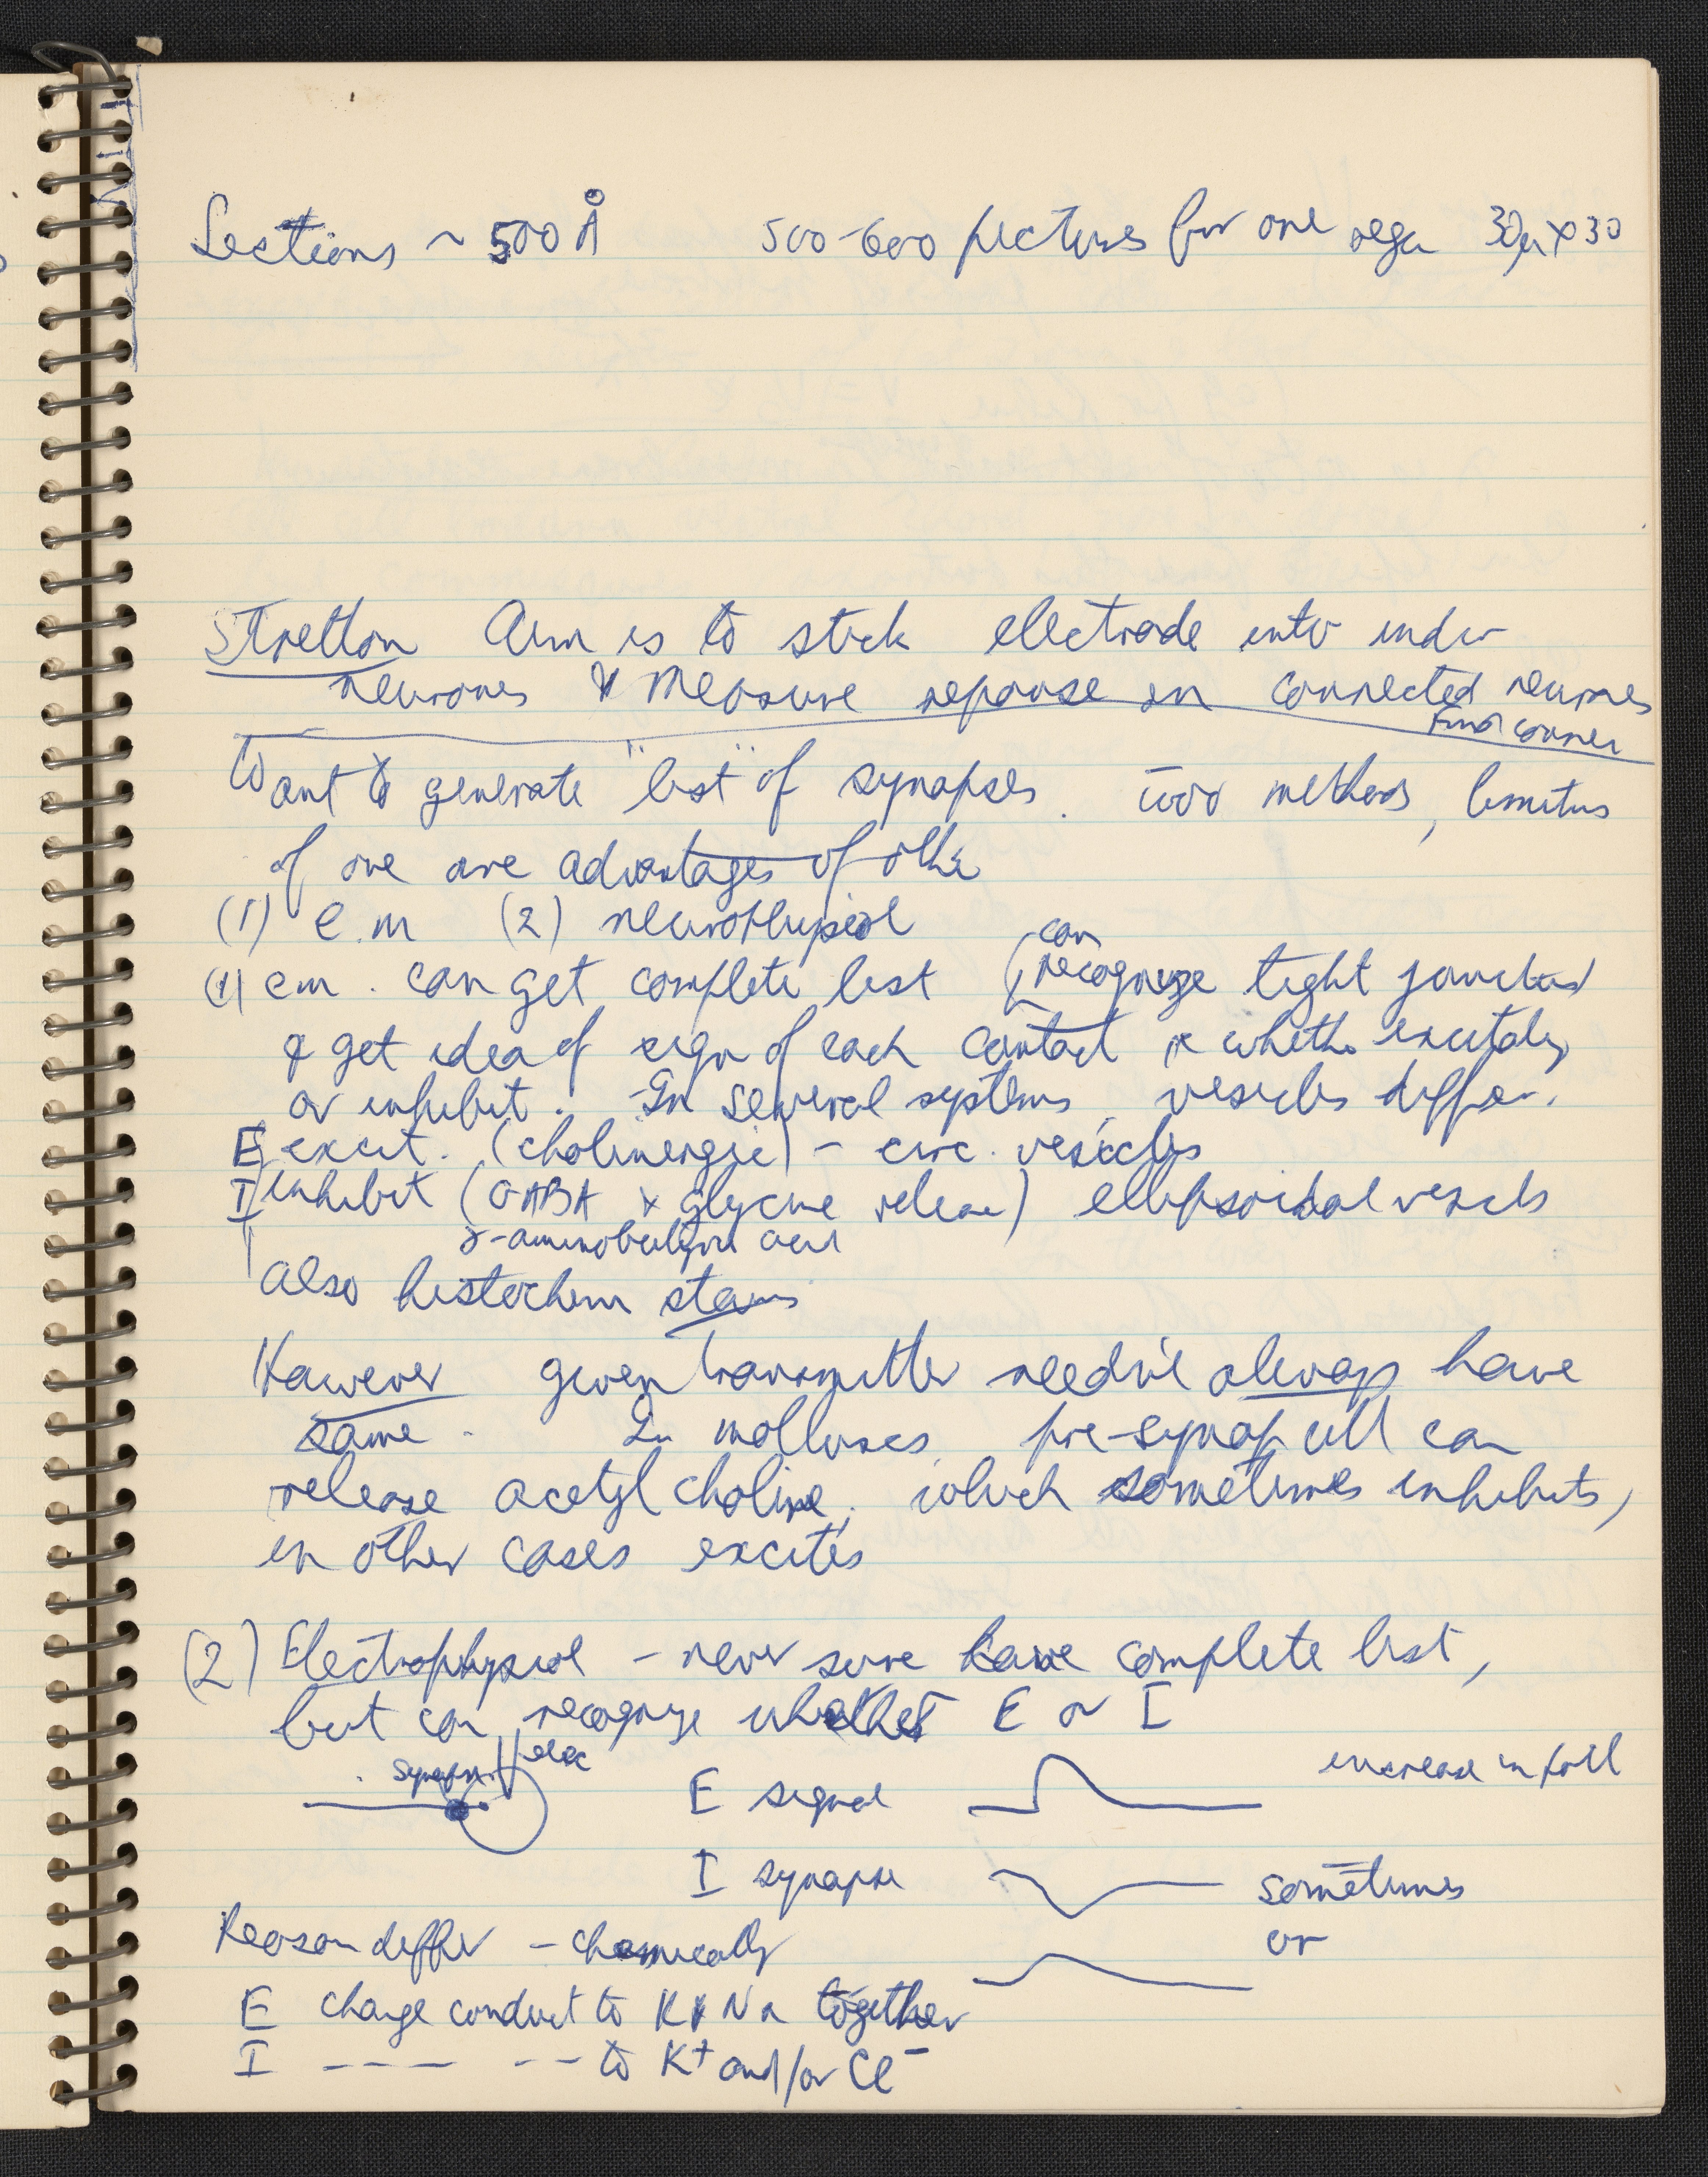 Sections ~ 500 Å 500-600 pictures for one 30μ × 30
Stretton Aim is to stick electrode into indiv
neurones & measure reponse in connected neurones
Find connec
Want to generate "list" of synapses. Two methods,
of one are advantages of other
(1) e.m (2) neurophysiol
(1) em. can get complete list (can
recognize tight junction
& get idea of sign of each contact whether excitatory
or inhibit. In several systems, vesicles differ.
E excit. (cholinergic) - circ. vesicles
I inhibit (GABA & glycine release) ellipsoidal vesicls
γ-aminobutyric acid
also histochem stains
However given transmitter needn't always have
same. In molluscs, pre-synap cell can
release acetyl choline, which sometimes inhibits,
in other cases excites
(2) Electrophysiol - never sure have complete list,
but can recognize whether E or I
synapse elec
E signal increase in pott
I synapse sometimes
or
Reason differ - chemically
E change conduct to K & Na together
I --- -- to K+ and/or Cl-